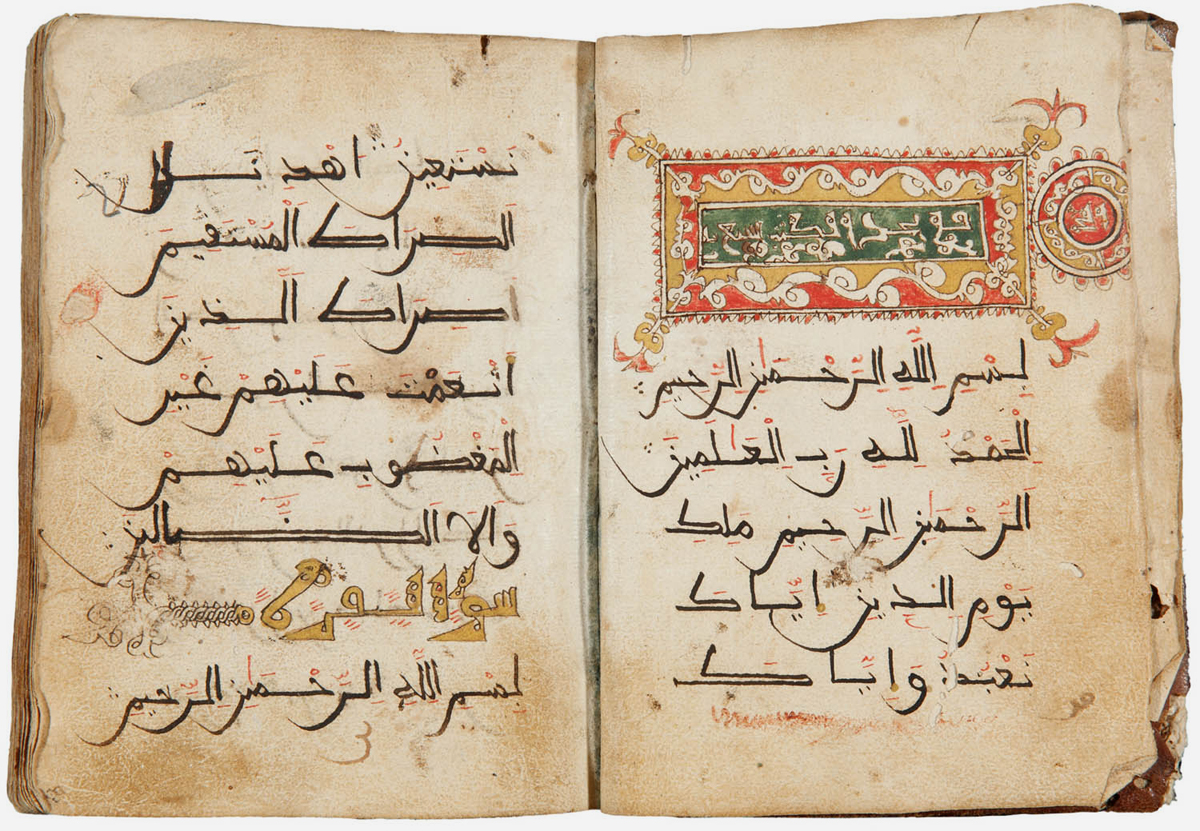 بِسْمِ اللَّهِ الرَّحْمَٰنِ الرَّحِيمِ
الْحَمْدُ لِلَّهِ رَبِّ الْعَٰلَمِينَ
الرَّحْمَٰنِ الرَّحِيمِ مَلِكِ
يَوْمِ الدِّينِ إِيَّاكَ
نَعْبُدُ وَإِيَّاكَ
نَسْتَعِينُ اهْدِنَا
الصِّرَاطَ الْمُسْتَقِيمَ
صِرَاطَ الَّذِينَ
أَنْعَمْتَ عَلَيْهِمْ غَيْرِ
الْمَغْضُوبِ عَلَيْهِمْ
وَلَا الضَّالِّينَ
سورة البقرة
بِسْمِ اللَّهِ الرَّحْمَٰنِ الرَّحِيمِ
3